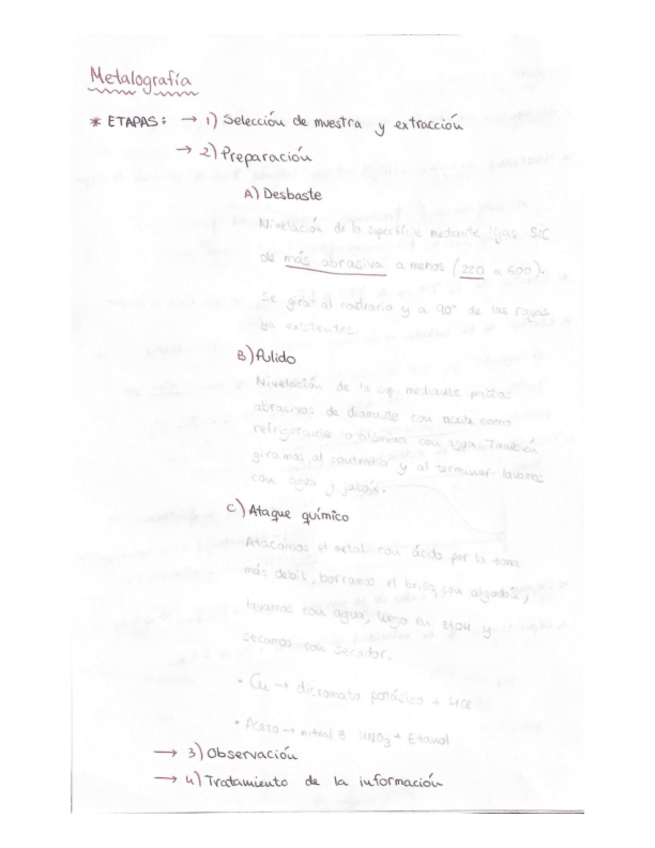 Metalografía
* ETAPAS: → 1) Selección de muestra y extracción
→ 2) Preparación
A) Desbaste
Nivelación de la superficie mediante lijas SiC
de más abrasiva a menos (220 a 600).
Se gira al contrario y a 90° de las rayas
ya existentes.
B) Pulido
Nivelación de la sup. mediante pastas
abrasivos de diamante con aceite como
refrigerante o alúmina con agua. También
giramos al contrario y al terminar lavamos
con agua y jabón.
C) Ataque químico
Atacamos el metal con ácido por la zona
más debil, borramos el brillo con algodón,
lavamos con agua, luego en EtOH y
secamos con secador.
• Cu → dicromato potásico + HCl
• Acero → nital HNO3 + Etanol
→ 3) Observación
→ 4) Tratamiento de la información